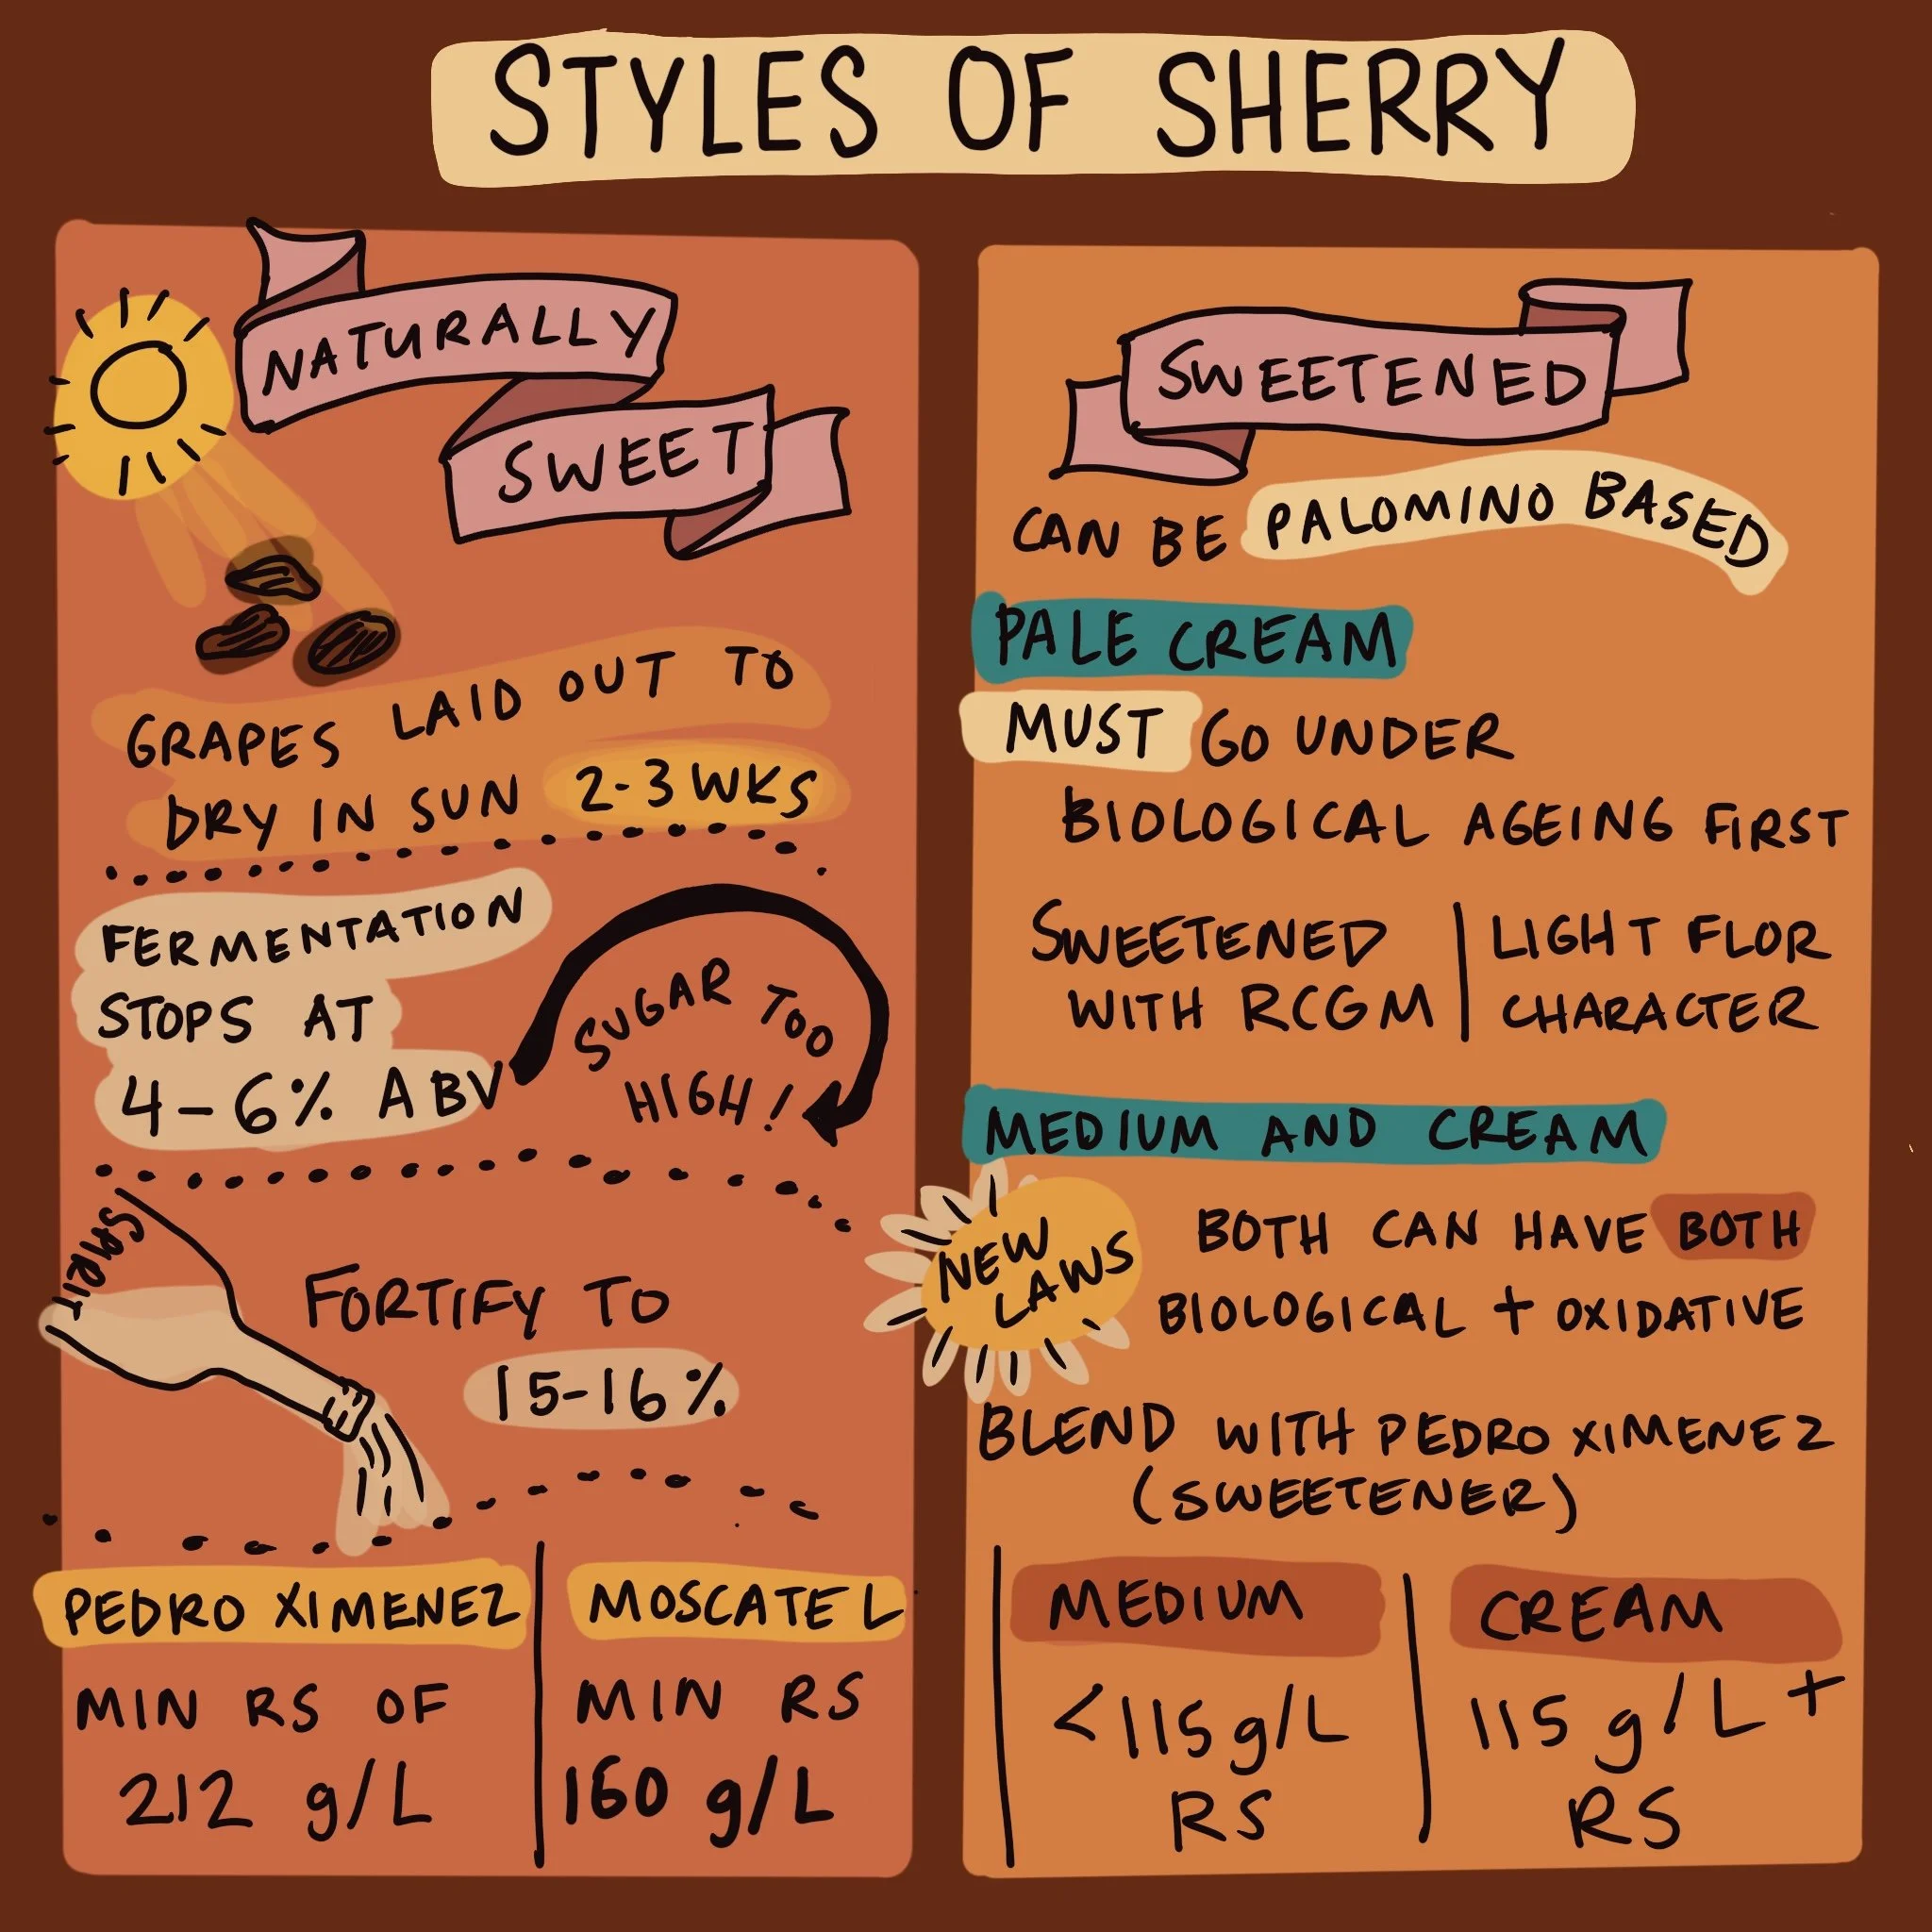 STYLES OF SHERRY
NATURALLY
SWEET
GRAPES LAID OUT TO
DRY IN SUN 2-3 WKS
FERMENTATION
STOPS AT
4-6% ABV
SUGAR TOO
HIGH!
FORTIFY TO
15-16%
PEDRO XIMENEZ
MIN RS OF
212 g/L
MOSCATEL
MIN RS
160 g/L
SWEETENED
CAN BE PALOMINO BASED
PALE CREAM
MUST GO UNDER
BIOLOGICAL AGEING FIRST
SWEETENED
WITH RCGM
LIGHT FLOR
CHARACTER
MEDIUM AND CREAM
NEW
LAWS
BOTH CAN HAVE BOTH
BIOLOGICAL + OXIDATIVE
BLEND WITH PEDRO XIMENEZ
(SWEETENER)
MEDIUM
<115g/L
RS
CREAM
115 g/L+
RS